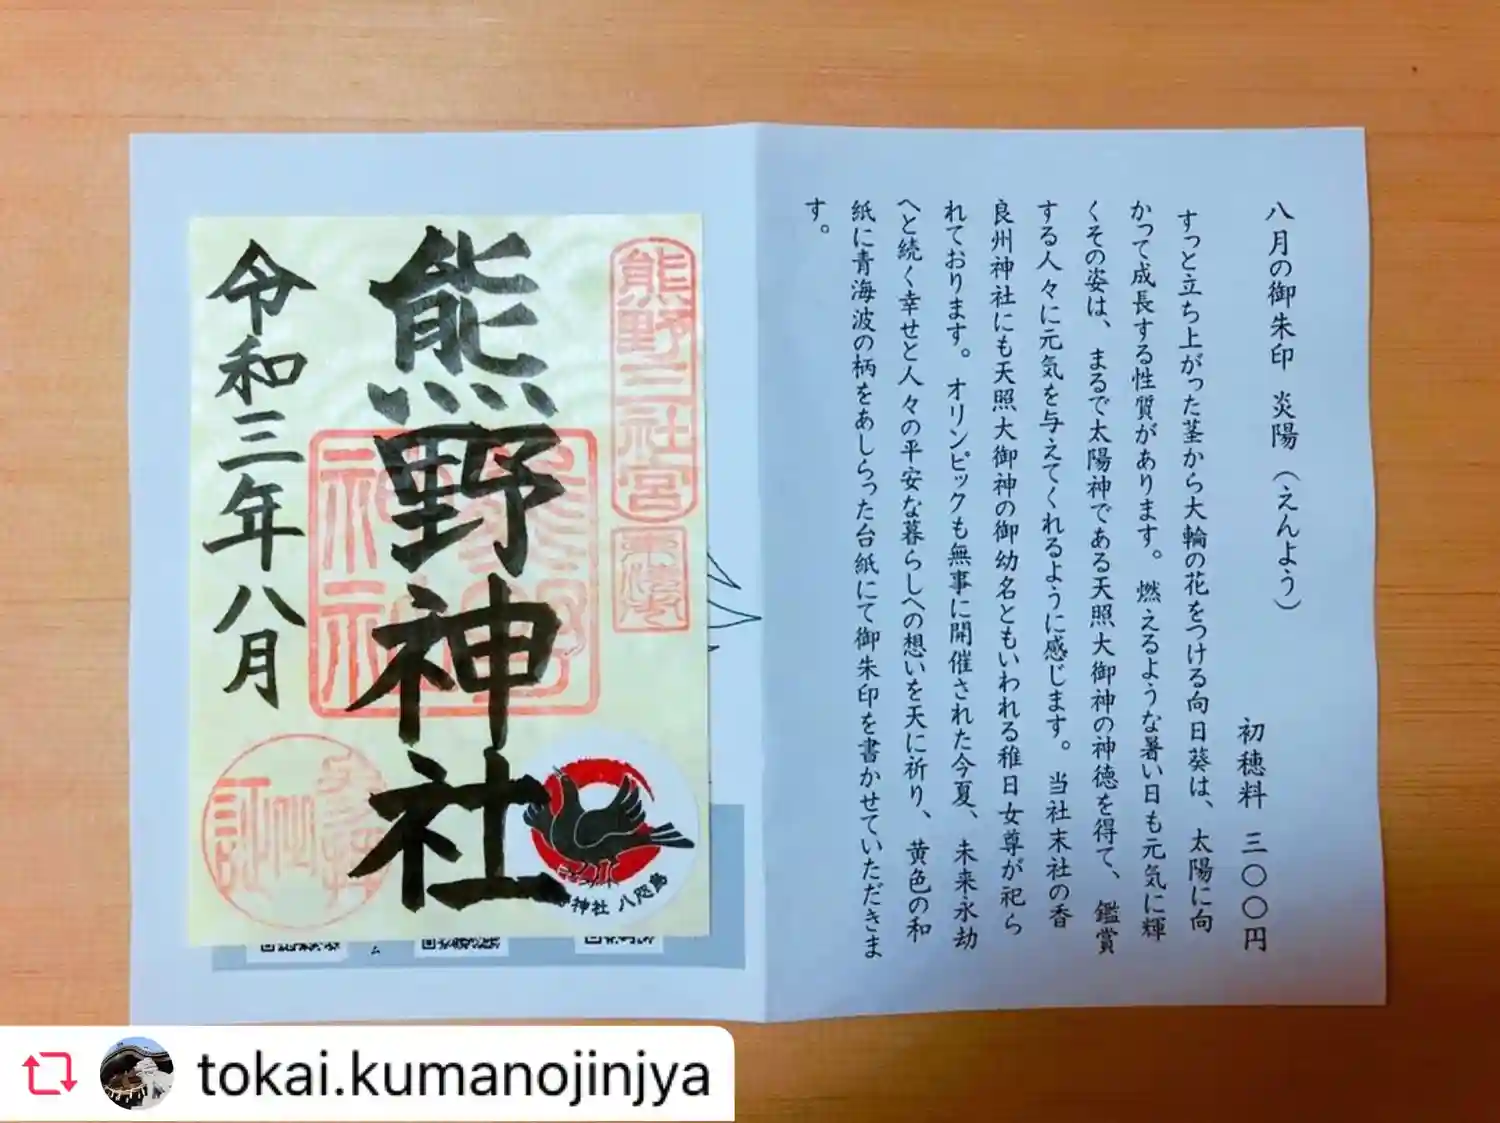 八月の御朱印 炎陽（えんよう）
初穂料 三〇〇円
すっと立ち上がった茎から大輪の花をつける向日葵は、太陽に向
かって成長する性質があります。燃えるような暑い日も元気に輝
くその姿は、まるで太陽神である天照大御神の神徳を得て、鑑賞
する人々に元気を与えてくれるように感じます。当社末社の香
良州神社にも天照大御神の御幼名ともいわれる稚日女尊が祀ら
れております。オリンピックも無事に開催された今夏、未来永劫
へと続く幸せと人々の平安な暮らしへの想いを天に祈り、黄色の和
紙に青海波の柄をあしらった台紙にて御朱印を書かせていただきま
す。
熊野三社宮
熊野神社
令和三年八月
神社 八咫烏
ム
tokai.kumanojinjya